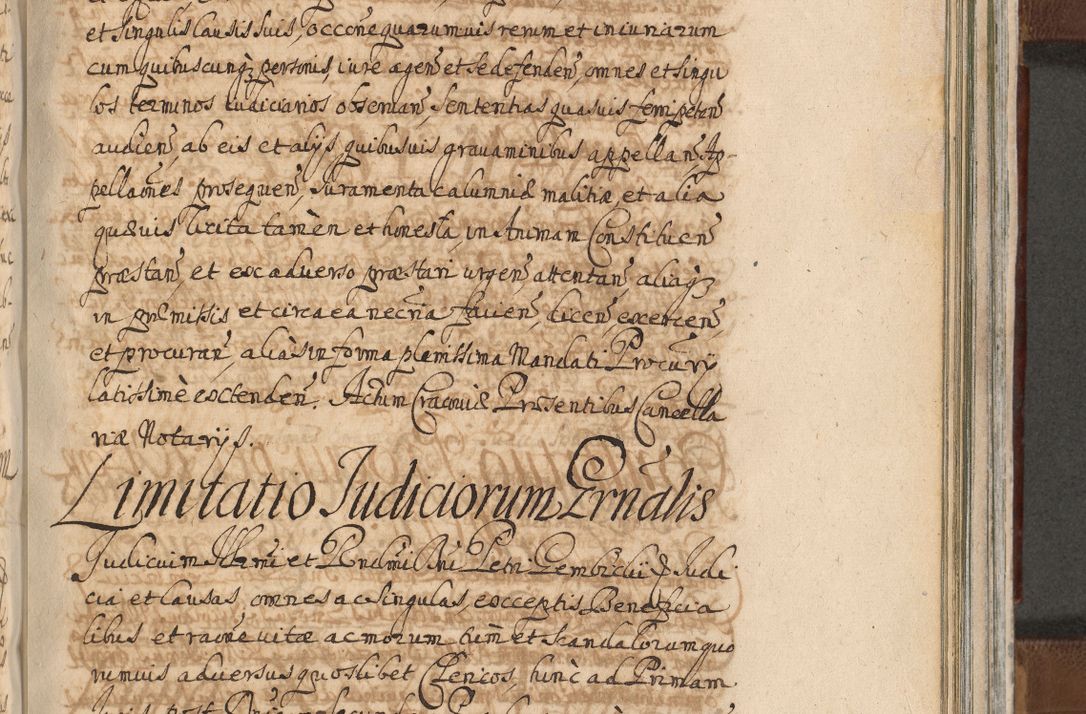 et singulis causis suis, occone quarumvis rerum et iniuriarum
cum quibuscunq; personis, iure agen̄ et se defenden̄, omnes et singu
los terminos iudiciarios observan̄, Sententias quasuis ferri petan̄
audien̄, ab eis et alijs quibusuis gravaminibus appellan̄ Ap-
pellaōnes prosequen̄, Juramenta calumniæ malitiæ, et alia
quæuis licita tamèn et honesta, in Animam Constituen̄
præstan̄, et ex aduerso præstari urgen̄, attentan̄, aliaq;
in præmissis et circa ea necria facien̄, dicen̄, exercen̄
et procuran̄, aliàs in forma plenissima Mandati Procurij
latissimè extenden̄. Actum Cracoviæ Præsentibus Cancella
riæ Notarijs.
Limitatio Judiciorum Grnalis
Judicium Illrmi et Rndmi Dni Petri Gembicki &c Judi
cia et causas, omnes ac singulas, exceptis Beneficia
libus et raōne vitæ ac morum tum et scandalorum quo
rumuis aduersus quoslibet Clericos, hinc ad Primam
Juris post